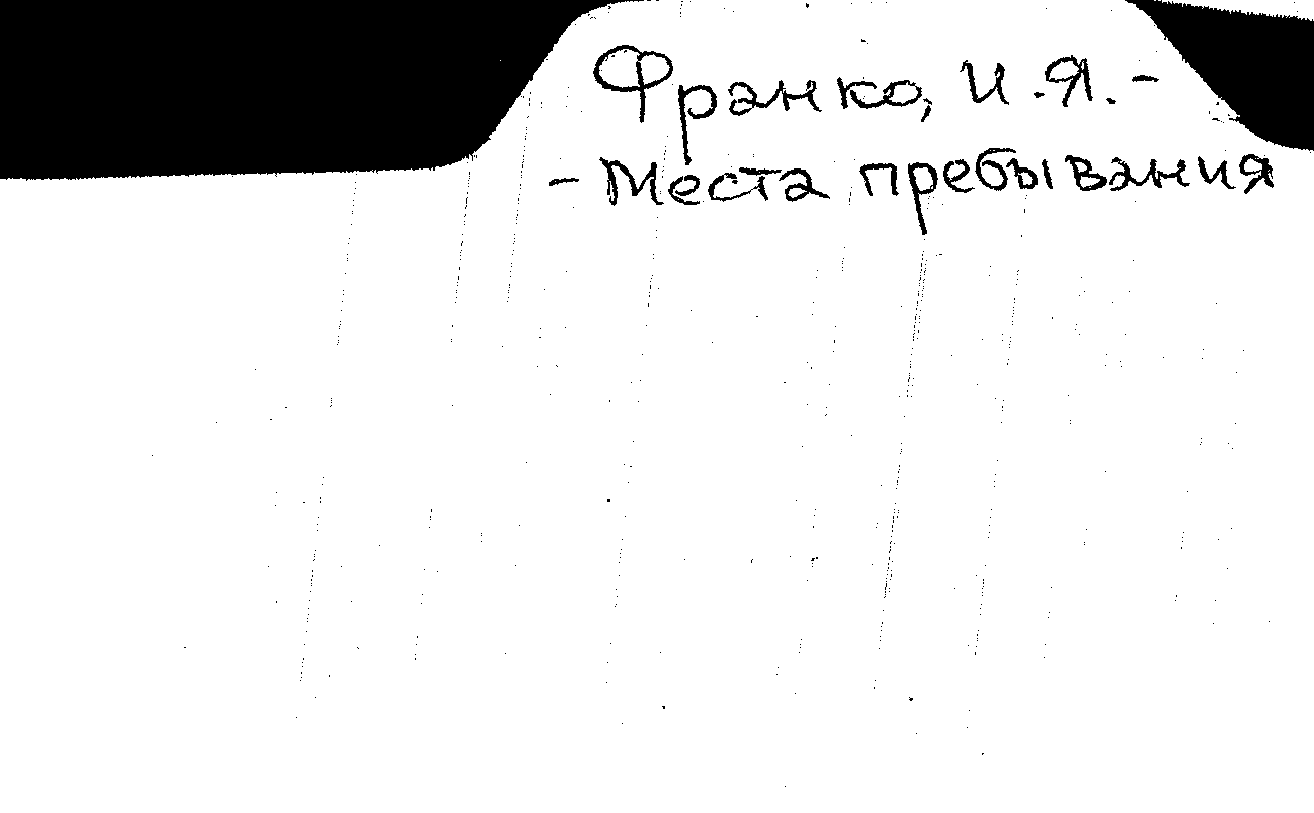 Франко, И.Я. -
- Места пребывания